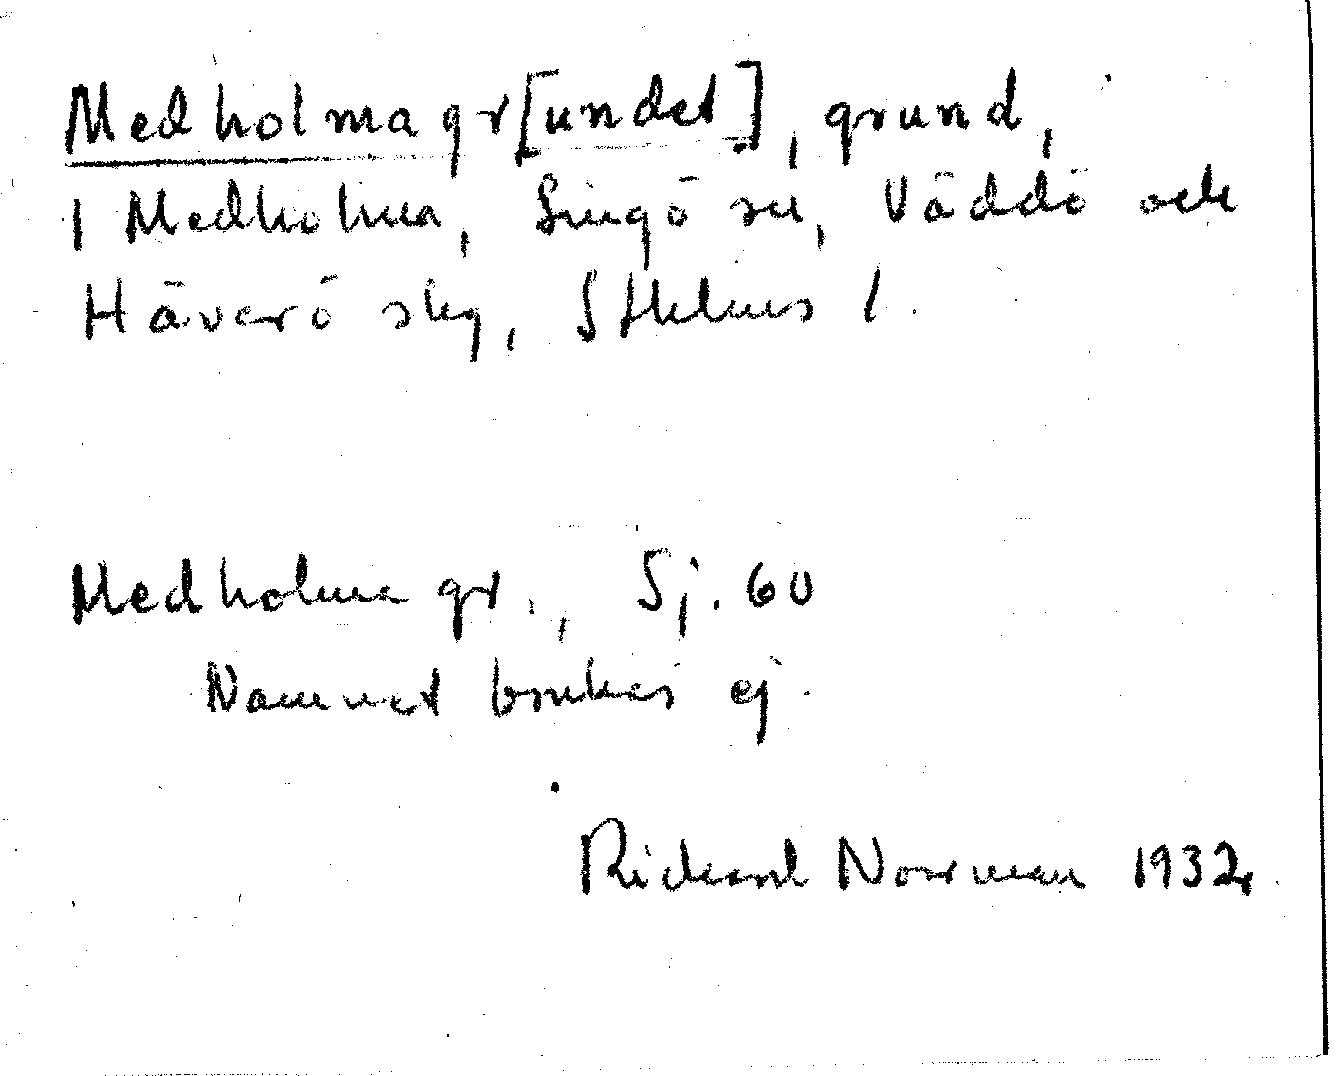 Medholmagr[undet], grund,
1 Medholma, Singö sn, Väddö och
Häverö slg, Sthlms l.
Medholmagr., Sj. 60
Namnet brukas ej.
Rickard Norman 1932.